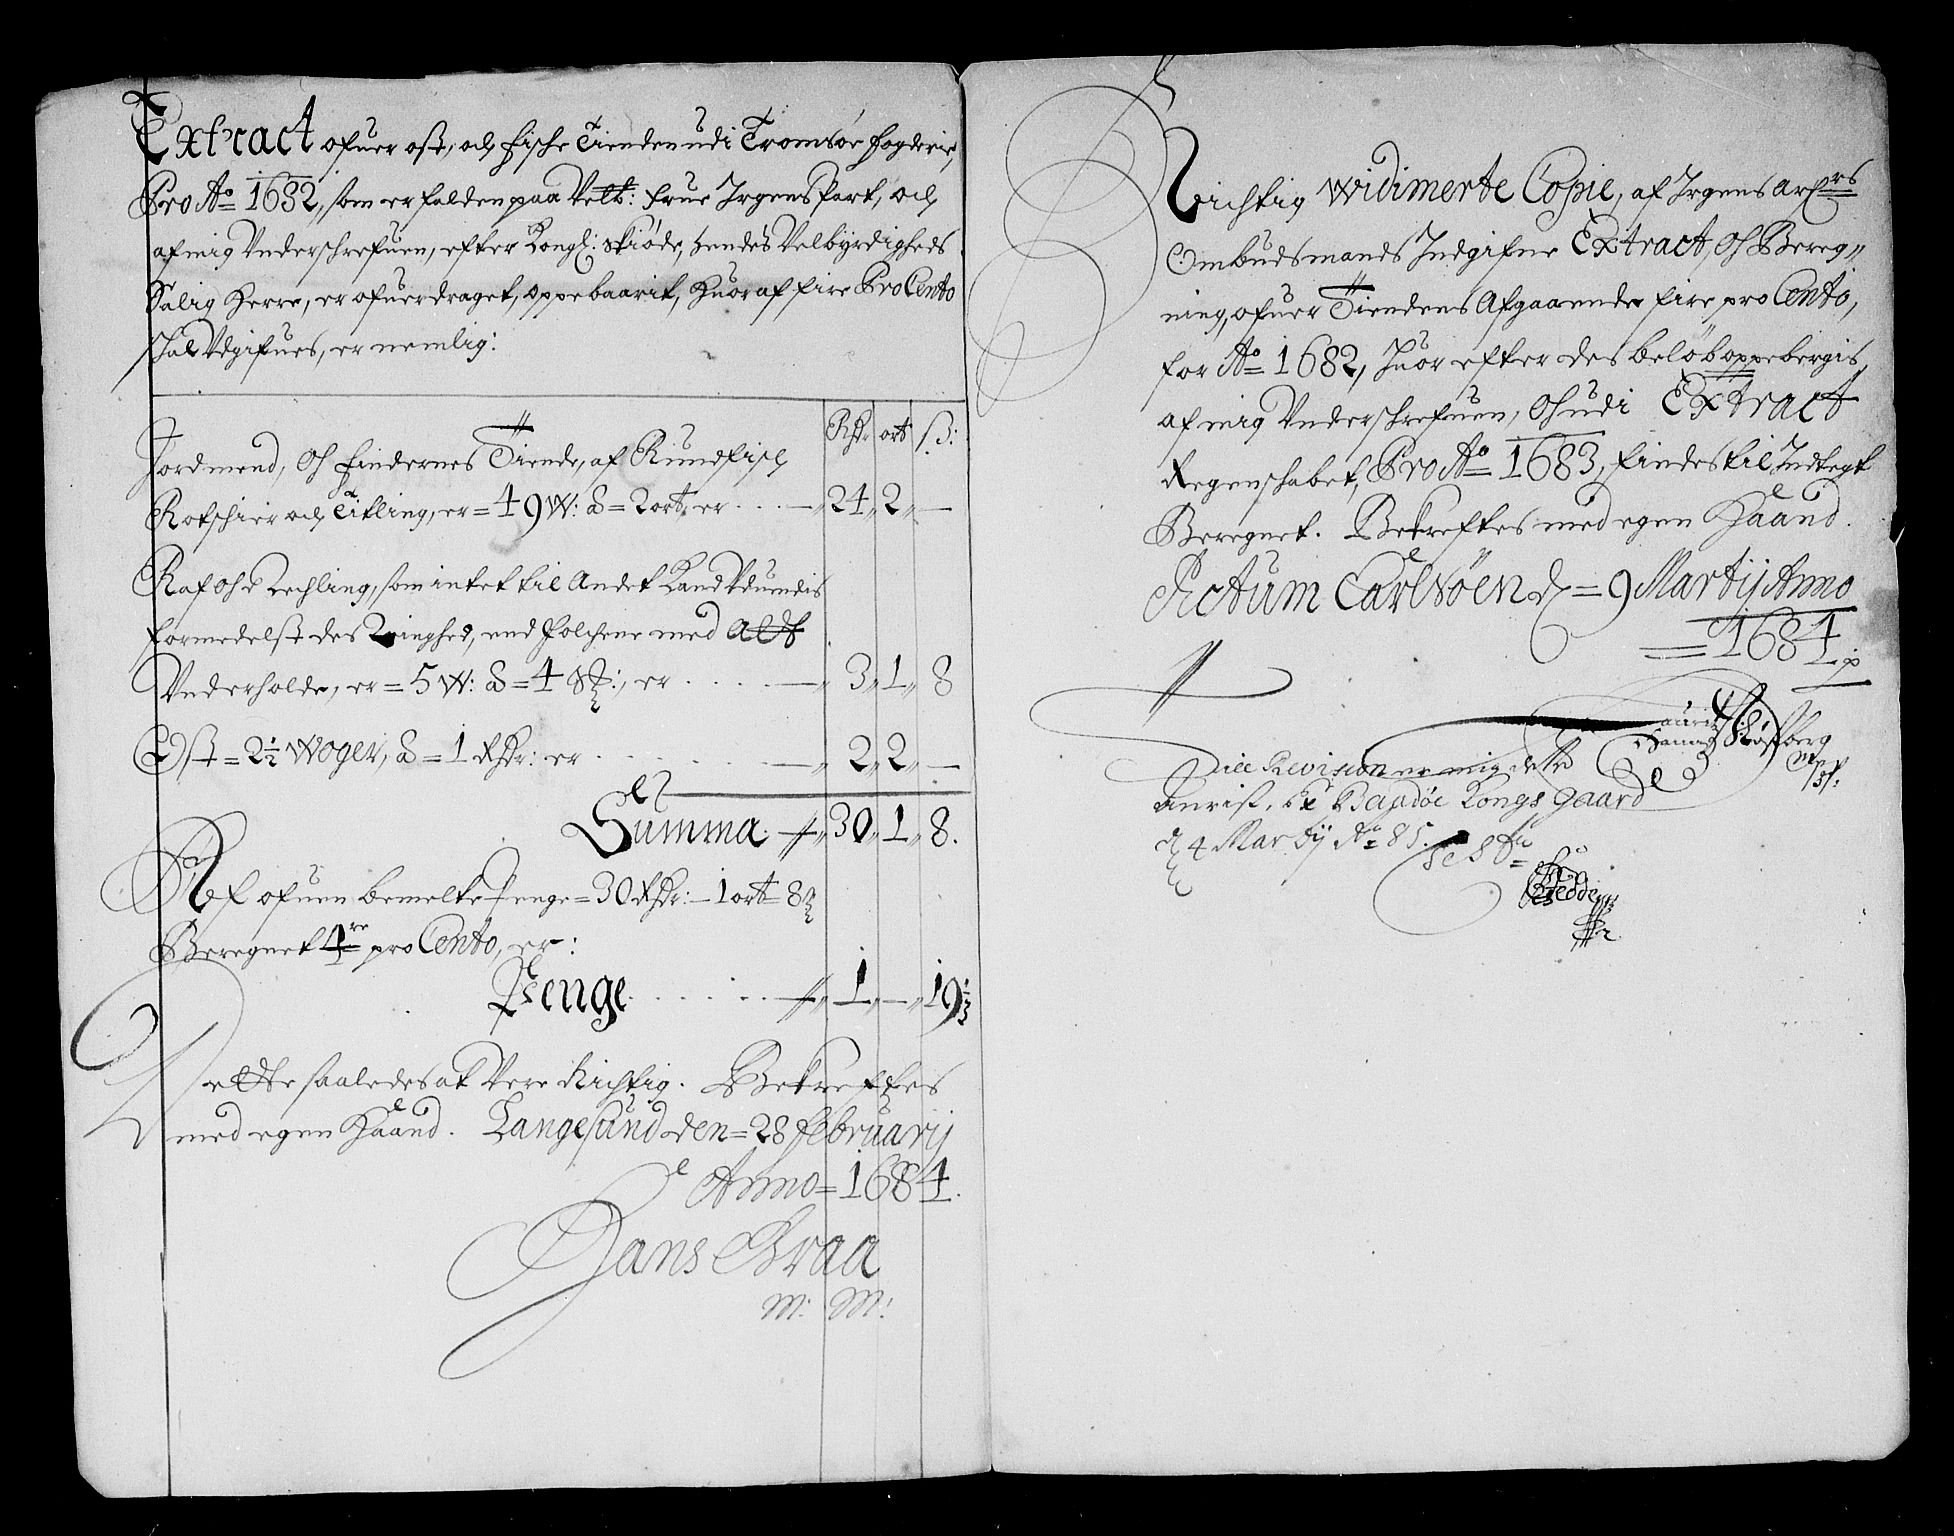 Extract ofuer ost, och fische Tienden udi Tromsøe fogderie,
Pro Ao 1682, som er falden paa Velb: frue Irgens Part, och
af mig Vnderschrefuen, efter Kongl: Skiøde, hendes Velbyrdigheds
Salig Herre, er ofuerdraget, oppebaarit, Huoraf fire Pro Cento
schal Vdgifues, er nemlig:
Rdr: ort ß:
Jordmend, Oh findernes Tiende, af Rundfisch,
Rotschier och Titling, er = 49 W: a = 2 ort, er . . . — 24 „ 2 „ —
Raf Oh Rechling, som intet til Andet Land Vduendis
formedelst des Ringhed, end folchene med Aldt
Vnderholde, er = 5 W: a = 4 , er . . . . — 3 „ 1 „ 8
Ost = 2½ Woger, a = 1 Rdr: er . . . . . . — 2 „ 2 „ —
Summa — 30 „ 1 „ 8.
Af ofuen bemelte Penge = 30 Rdr: — 1 ort = 8 ß
Beregnet 4re pro Cento, er:
Penge . . . . . . — 1 „ — „ 19
Dette saaledes at Vere Richtig. Bekreftes
med egen Haand. Langesund den = 28 februarij
Anno = 1684.
Hans Braa
M: M:
Richtig Widimerte Copie, af Irgens Arfuers
Ombudsmands Indgifne Extract, Oh Bereg„
ning, ofuer Tiendens Afgaaende fire pro Cento,
for Ao 1682, Huor efter des beløb oppebergis,
af mig Vnderschrefuen, Oh udi Extract
Regenschabet, Pro Ao 1683, findes til Indtegt
Beregnet. Bekreftes med egen Haand.
Actum Carlsøen d = 9 Martij Anno
1684
Till Revision er mig dette
 Kongs gaard
d 4 Martij Ao 85. Testr